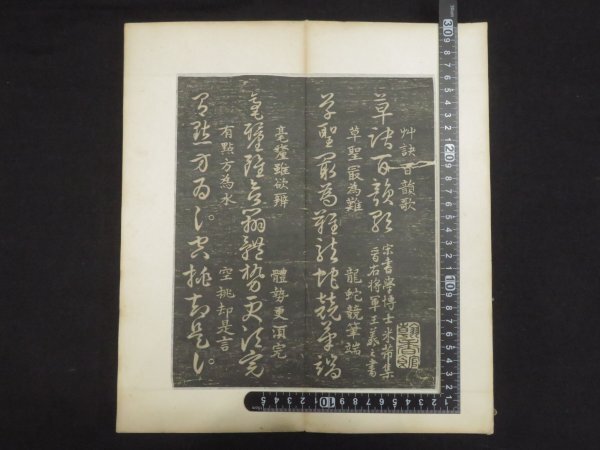 艸訣百韻歌
草訣百韻歌
宋書學博士米芾集
晉右將軍王羲之書
草聖最為難
龍蛇競筆端
草聖最為難龍蛇競筆端
毫釐雖欲辨
體勢更須完
毫釐雖欲辨體勢更須完
有點方為水
空挑却是言
有點方為水空挑却是言